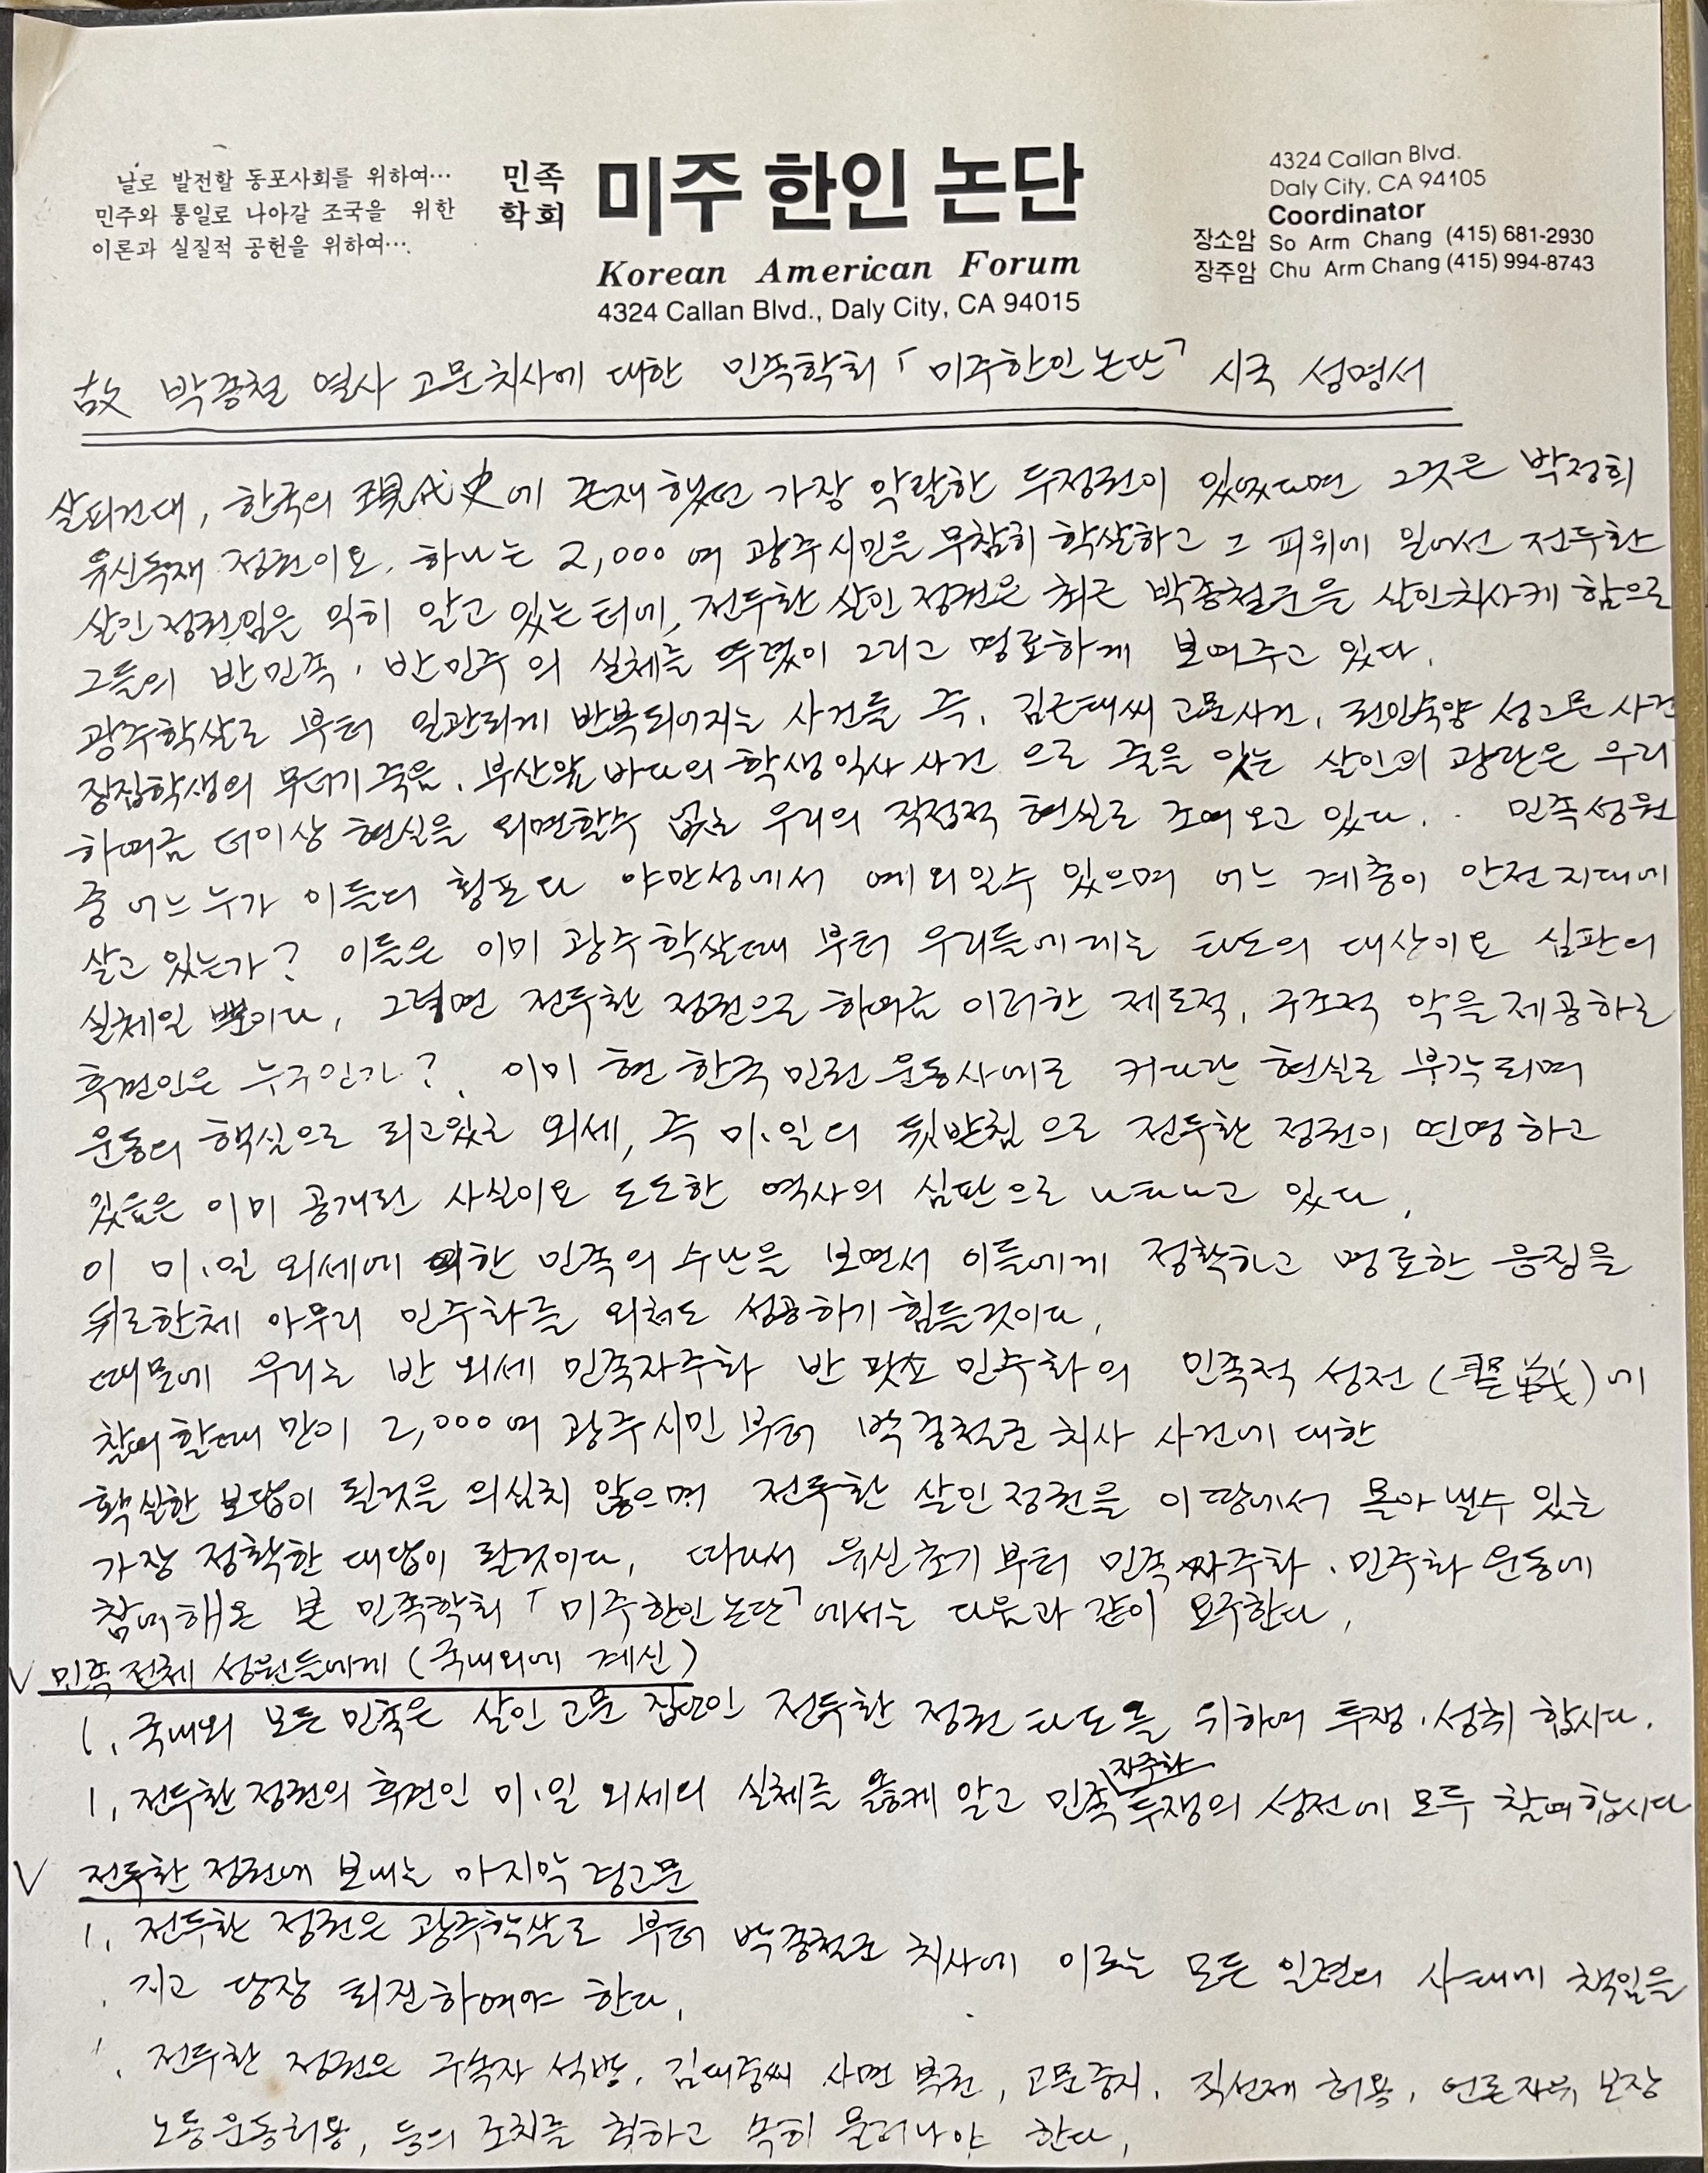 날로 발전할 동포사회를 위하여…
민주와 통일로 나아갈 조국을 위한
이론과 실질적 공헌을 위하여….
민족
학회
미주 한인 논단
Korean American Forum
4324 Callan Blvd., Daly City, CA 94015
4324 Callan Blvd.
Daly City, CA 94105
Coordinator
장소암 So Arm Chang (415) 681-2930
장주암 Chu Arm Chang (415) 994-8743
故 박종철 열사 고문치사에 대한 민족학회「미주한인논단」 시국 성명서
살피건대, 한국의 現代史에 존재했던 가장 악랄한 두정권이 있었다면 그것은 박정희
유신독재 정권이요, 하나는 2,000여 광주시민을 무참히 학살하고 그 피위에 일어선 전두환
살인정권임은 익히 알고 있는 터에, 전두환 살인정권은 최근 박종철군을 살인치사케 함으로
그들의 반민족·반민주의 실체를 뚜렷이 그리고 명료하게 보여주고 있다.
광주학살로 부터 일관되게 반복되어지는 사건들 즉, 김근태씨 고문사건, 권인숙양 성고문사건
장집학생의 무더기 죽음, 부산앞바다의 학생익사 사건 으로 줄을 잇는 살인의 광란은 우리
하여금 더이상 현실을 외면할수 없는 우리의 직접적 현실로 조여오고 있다. 민족성원
중 어느 누가 이들의 횡포와 야만성에서 예외일수 있으며 어느 계층이 안전지대에
살고 있는가? 이들은 이미 광주학살때 부터 우리들에게는 타도의 대상이요 심판의
실체일 뿐이다. 그러면 전두환 정권으로 하여금 이러한 제도적, 구조적 악을 제공하는
후견인은 누구인가? 이미 현 한국 민권 운동사에도 커다란 현실로 부각되며
운동의 핵심으로 되고있는 외세, 즉 미·일의 뒷받침으로 전두환 정권이 연명하고
있음은 이미 공개된 사실이요 도도한 역사의 심판으로 나타나고 있다.
이 미·일 외세에 의한 민족의 수난을 보면서 이들에게 정확하고 명료한 응징을
뒤로한체 아무리 민주화를 외쳐도 성공하기 힘들것이다.
때문에 우리는 반외세 민족자주화 반 팟쇼 민주화의 민족적 성전(聖戰)에
참여할때 만이 2,000여 광주시민 부터 박종철군 치사 사건에 대한
확실한 보답이 될것을 의심치 않으며 전두환 살인정권을 이땅에서 몰아낼수 있는
가장 정확한 대답이 될것이다. 따라서 유신초기부터 민족자주화·민주화 운동에
참여해온 본 민족학회「미주한인논단」에서는 다음과 같이 요구한다.
V 민족전체 성원들에게 (국내외에 계신)
1, 국내외 모든 민족은 살인 고문 집단인 전두환 정권 타도를 위하여 투쟁·성취 합시다.
1, 전두환 정권의 후견인 미·일 외세의 실체를 옳게 알고 민족 자주화 투쟁의 성전에 모두 참여합시다
V 전두환 정권에 보내는 마지막 경고문
1, 전두환 정권은 광주학살로 부터 박종철군 치사에 이르는 모든 일련의 사태에 책임을
지고 당장 퇴진하여야 한다.
1, 전두환 정권은 구속자 석방, 김대중씨 사면 복권, 고문중지, 직선제 허용, 언론자유 보장
노동운동허용, 등의 조치를 취하고 속히 물러나야 한다.